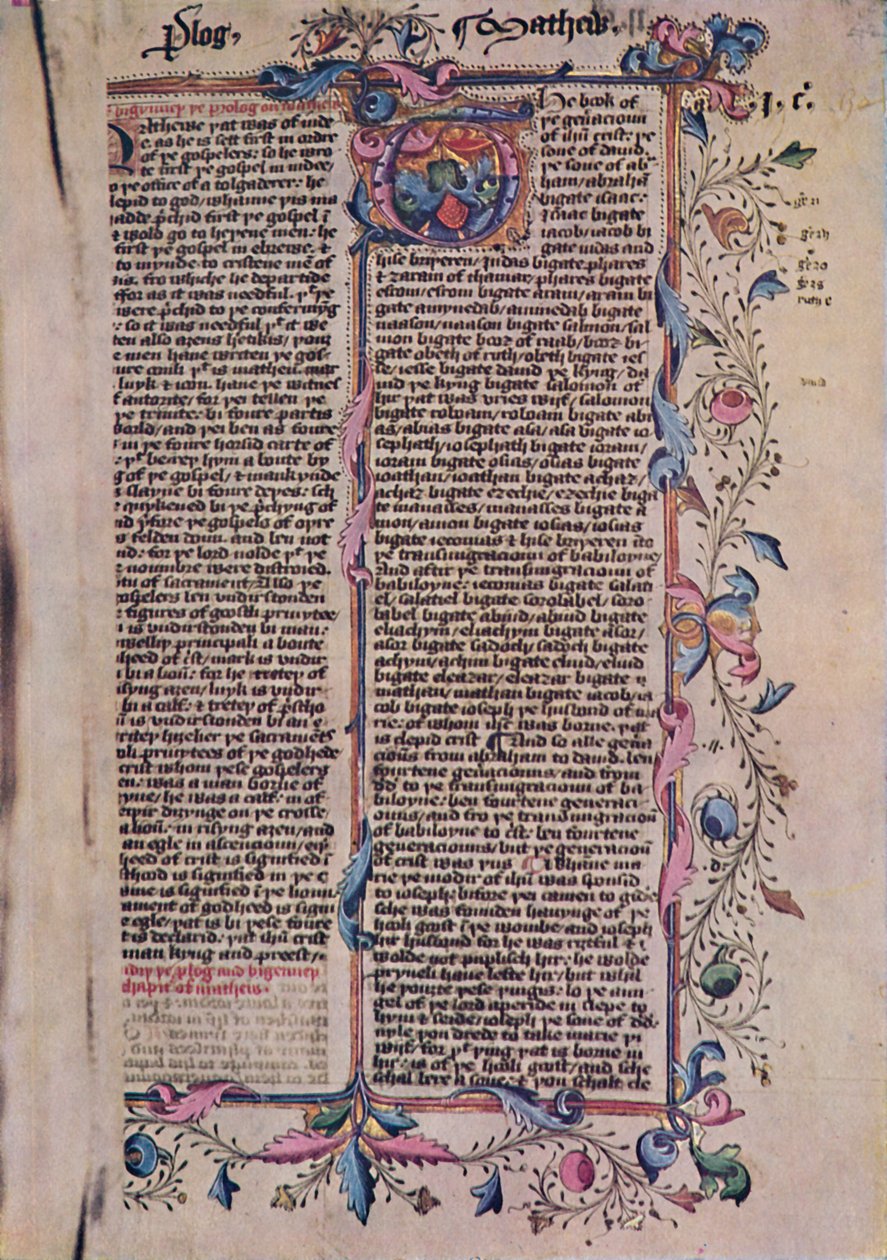 Prolog,
¶ Matheu
Bigynneþ þe prolog on matheu
Matheu þat was of iude
e, as he is sett first in ordre
of þe gospelers: so he wro
te first þe gospel in iudee/
o þe office of a tolgaderer: he
clepid to god/ whanne þis ma
hadde p̄chid first þe gospel ī
& wold go to heþene men: he
first þe gospel in ebrewe: &
to mynde to cristene mē of
fro whiche he departide
ffor as it was needful. þt þe
were p̄chid to þe confermyng
: so it was needful þt it we
ten also aȝens heretikis/
e men haue writen þe gos-
þt is matheu. mar
luyk & ioon. haue þe witnes
autorite/ for þei tellen þe
þe trinite: bi foure partis
world/ and þei ben as foure
in þe foure horsid carte of
: þt beareþ hym a boute by
g of þe gospel/ & mankynde
slayne bi foure deþes: sch
quykened bi þe p̄chyng of
nd þfore þe gospels of oþre
felden doun. and ben not
nd: for þe lord nolde þt þe
noumbre were distroied.
of sacrament/ Also þe
gospelers ben vndirstonden
figures of goostli pryuytee/
is vndirstonden bi man:
principali a boute
heed of crist/ mark is vndir
bi a lioun: for he treteþ of
isyng aȝen/ luyk is vndir
bi a calf: & treteþ of p̄stho
is vndirstonden bi an e
writeþ hyeher þe sacramentis
oli pryuytees of þe godhede
crist whom þese gospelers
en: was a man borne of
yne/ he was a calf: in of
diynge on þe crosse/
a lioun: in risyng aȝen/ and
an egle in ascencioun/
heed of crist is signified ī
sthood is signified in þe c
ome is signified ī þe lioun
ament of godheed is signi
e egle/ þat is bi þese foure
t is declarid. þat ihū crist
man kyng and preest/
þe prolog and bigynneþ
chapitre of matheu.
I. cº.
The book of
þe genacioun
of ihū crist: þe
sone of dauid:
þe sone of ab
ham/ abrahā
bigate isaac:
Isaac bigate
iacob/ iacob bi
gate iudas and
hise briþeren/ Judas bigate phares
& zaram of thamar/ phares bigate
esrom/ esrom bigate aram/ aram bi
gate amynadab/ amynedab bigate
naason/ naason bigate salmon/ sal
mon bigate booz of raab/ booz bi
gate obeth of ruth/ obeth bigate ies
se/ iesse bigate dauid þe kyng/ da
uid þe kyng bigate salomon of
hir þat was vries wijf/ salomon
bigate roboam/ roboam bigate abi
as/ abias bigate asa/ asa bigate io
sephath/ iosephath bigate ioram/
ioram bigate osias/ osias bigate
ioathan/ ioathan bigate achaz/
achaz bigate ezechie/ ezechie biga
te manasses/ manasses bigate a
mon/ amon bigate iosias/ iosias
bigate ieconias & hise briþeren īto
þe transmigracioun of babiloyne/
And aftir þe transmigracioun of
babiloyne: ieconias bigate salati
el/ salatiel bigate zorobabel/ zoro
babel bigate abiud/ abiud bigate
eliachym/ eliachym bigate asor/
asor bigate sadoch/ sadoch bigate
achym/ achim bigate eliud/ eliud
bigate eleazar/ eleazar bigate
mathan/ mathan bigate iacob/ ia
cob bigate ioseph þe husbond of ma
rie: of whom ihc was borne. þat
is clepid crist ¶ And so alle gena
ciouns from abraham to dauid. ben
fourtene genaciouns/ and from
dd to þe transmigracioun of ba
biloyne: ben fourtene generaci
ouns/ and fro þe transmigracioun
of babiloyne to cst: ben fourtene
generaciouns/ but þe generacioun
of crist was þus ¶ Whane ma
rie þe modir of ihū was spousid
to ioseph: bifore þei camen to gidre
sche was founden hauynge of þe
hooli goost ī þe wombe/ and ioseph
hir husbond for he was riȝtful & ī
wolde not puplisch hir: he wolde
pryueli haue lefte hir/ but whil
he þouȝte þese þingis: lo þe aun
gel of þe lord aperide in slepe to
hym & seide/ ioseph þe sone of dd:
nyle þou drede to take marie þi
wijf/ for þt þing þat is borne in
hir: is of þe hooli goost/ and sche
schal bere a sone: & þou schalt cle